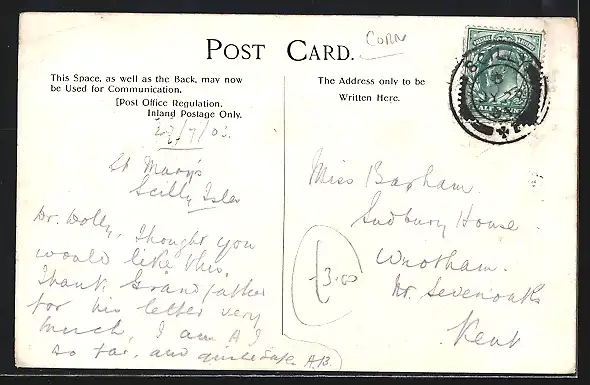 POST CARD.
CORN
This Space, as well as the Back, may now
be Used for Communication.
[Post Office Regulation.
Inland Postage Only.
The Address only to be
Written Here.
SCILLY
27/7/03.
St Mary's
Scilly Isles
Dr. Dolly, Thought you
would like this.
Thank Grandfather
for his letter very
much, I am A I
so far, and quite safe A.B.
Miss Barham.
Sudbury House
Wrotham.
Nr. Sevenoaks
Kent
£3.00